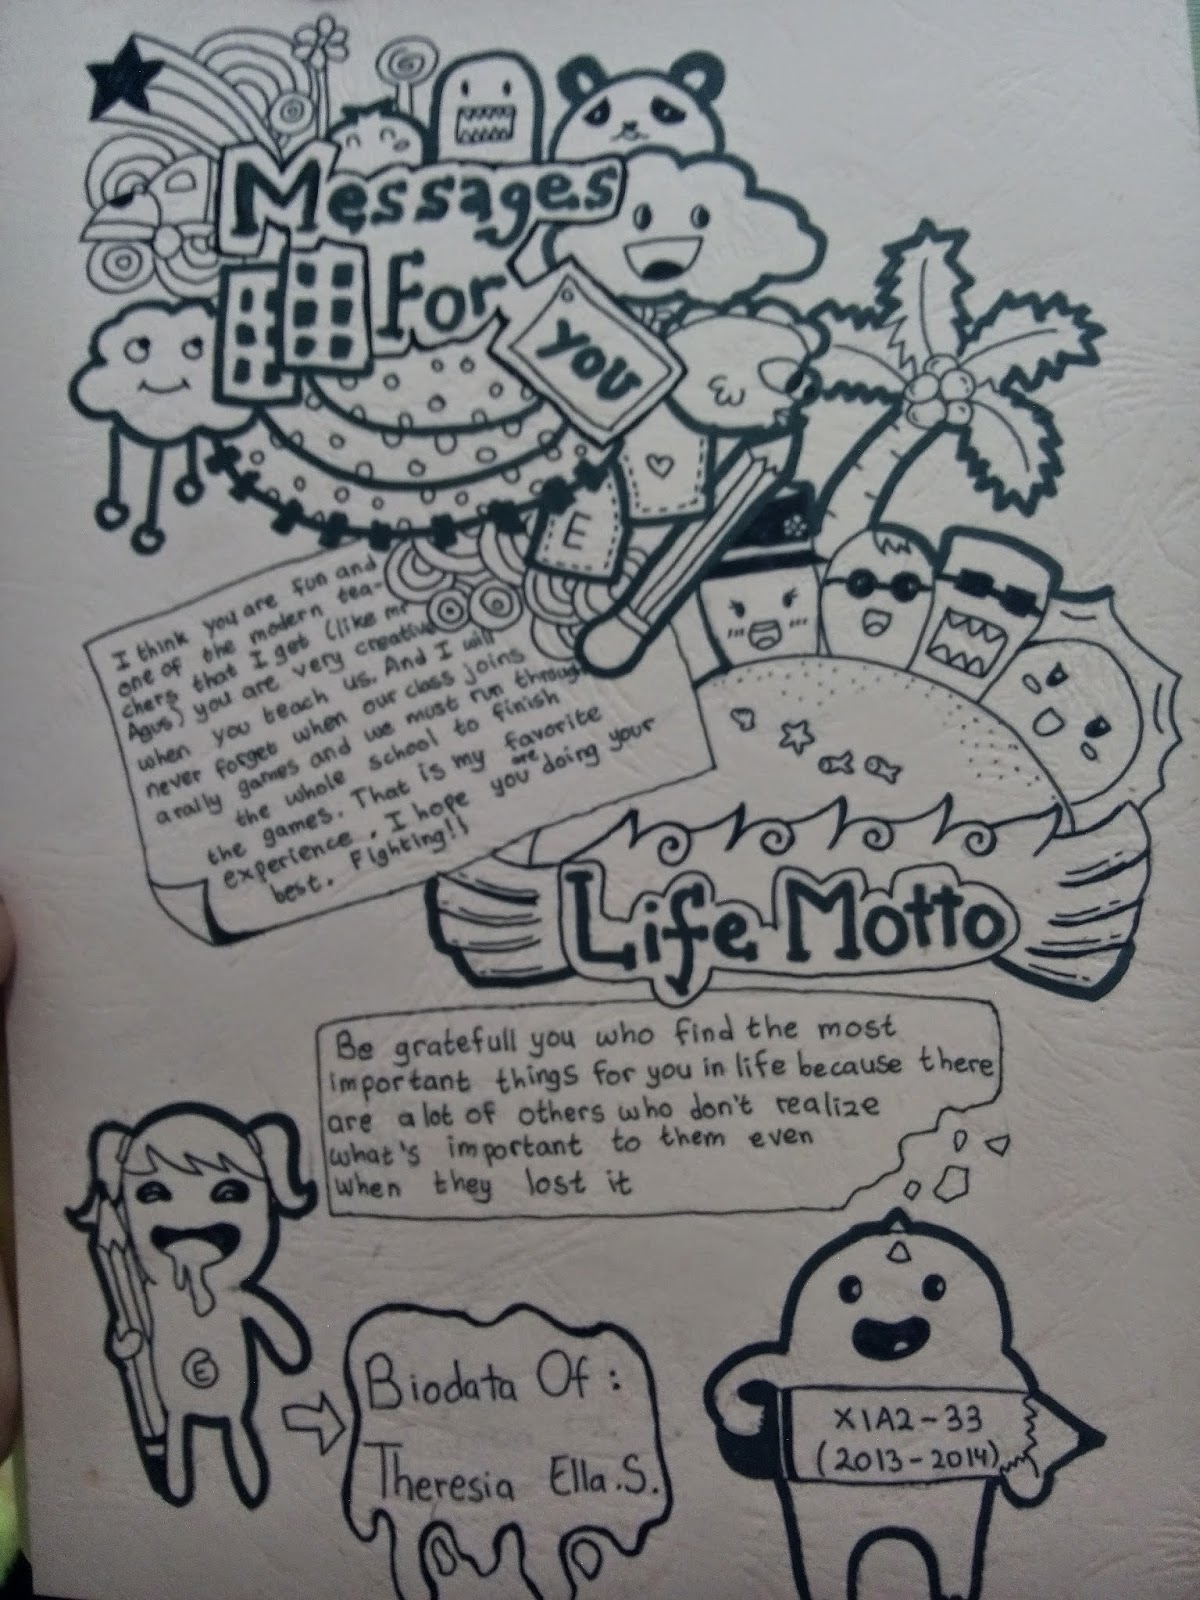 Messages
For
YOU
E
I think you are fun and
one of the modern tea-
chers that I get (like mr
Agus) you are very creative
when you teach us. And I will
never forget when our class joins
a rally games and we must run through
the whole school to finish
the games. That is my favorite
experience. I hope you are doing your
best. Fighting!!
Life Motto
Be gratefull you who find the most
important things for you in life because there
are a lot of others who don't realize
what's important to them even
when they lost it
E
Biodata Of :
Theresia Ella.S.
XIA2-33
(2013-2014)